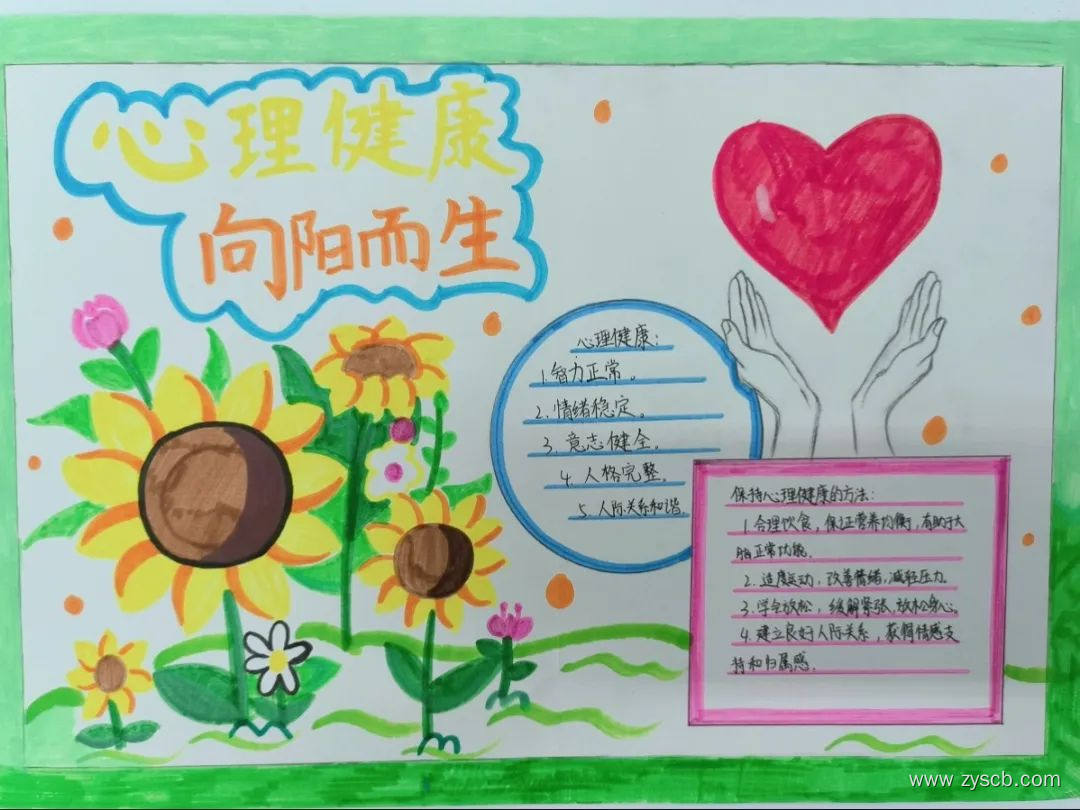 心理健康
向阳而生
心理健康:
1.智力正常。
2.情绪稳定。
3.意志健全。
4.人格完整。
5.人际关系和谐.
保持心理健康的方法:
1.合理饮食，保证营养均衡，有助于大
脑正常功能.
2.适度运动，改善情绪，减轻压力.
3.学会放松，缓解紧张，放松身心。
4.建立良好人际关系，获得情感支
持和归属感.
www.zyscb.com